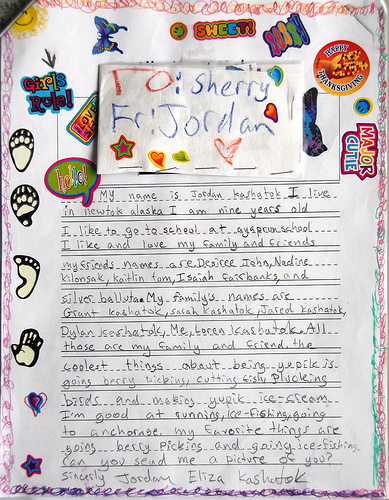 SWEET!
HAPPY
THANKSGIVING
Girls
Rule!
LOVE
To: Sherry
Fr: Jordan
MAJOR
CUTIE
hello!
My name is Jordan kashatok I live
in newtok alaska I am nine years old
I like to go to school at ayaprun school
I like and love my family and friends
my friends names are Desiree John, Nadine
kilongak, kaitlin tom, Isaiah fairbanks, and
silver ballutat. My family's names are
Grant kashatok, sarah kashatok, Jared kashatok,
Dylan kashatok, Me, Loren kashatok. All
those are my family and friend. the
coolest things about being yupik is
going berry picking, cutting fish, plucking
birds and making yupik ice-cream.
I'm good at running, ice-fishing, going
to anchorage. my favorite things are
going berry picking and going ice-fishing.
Can you send me a picture of you?
Sincerly Jordan Eliza Kashatok